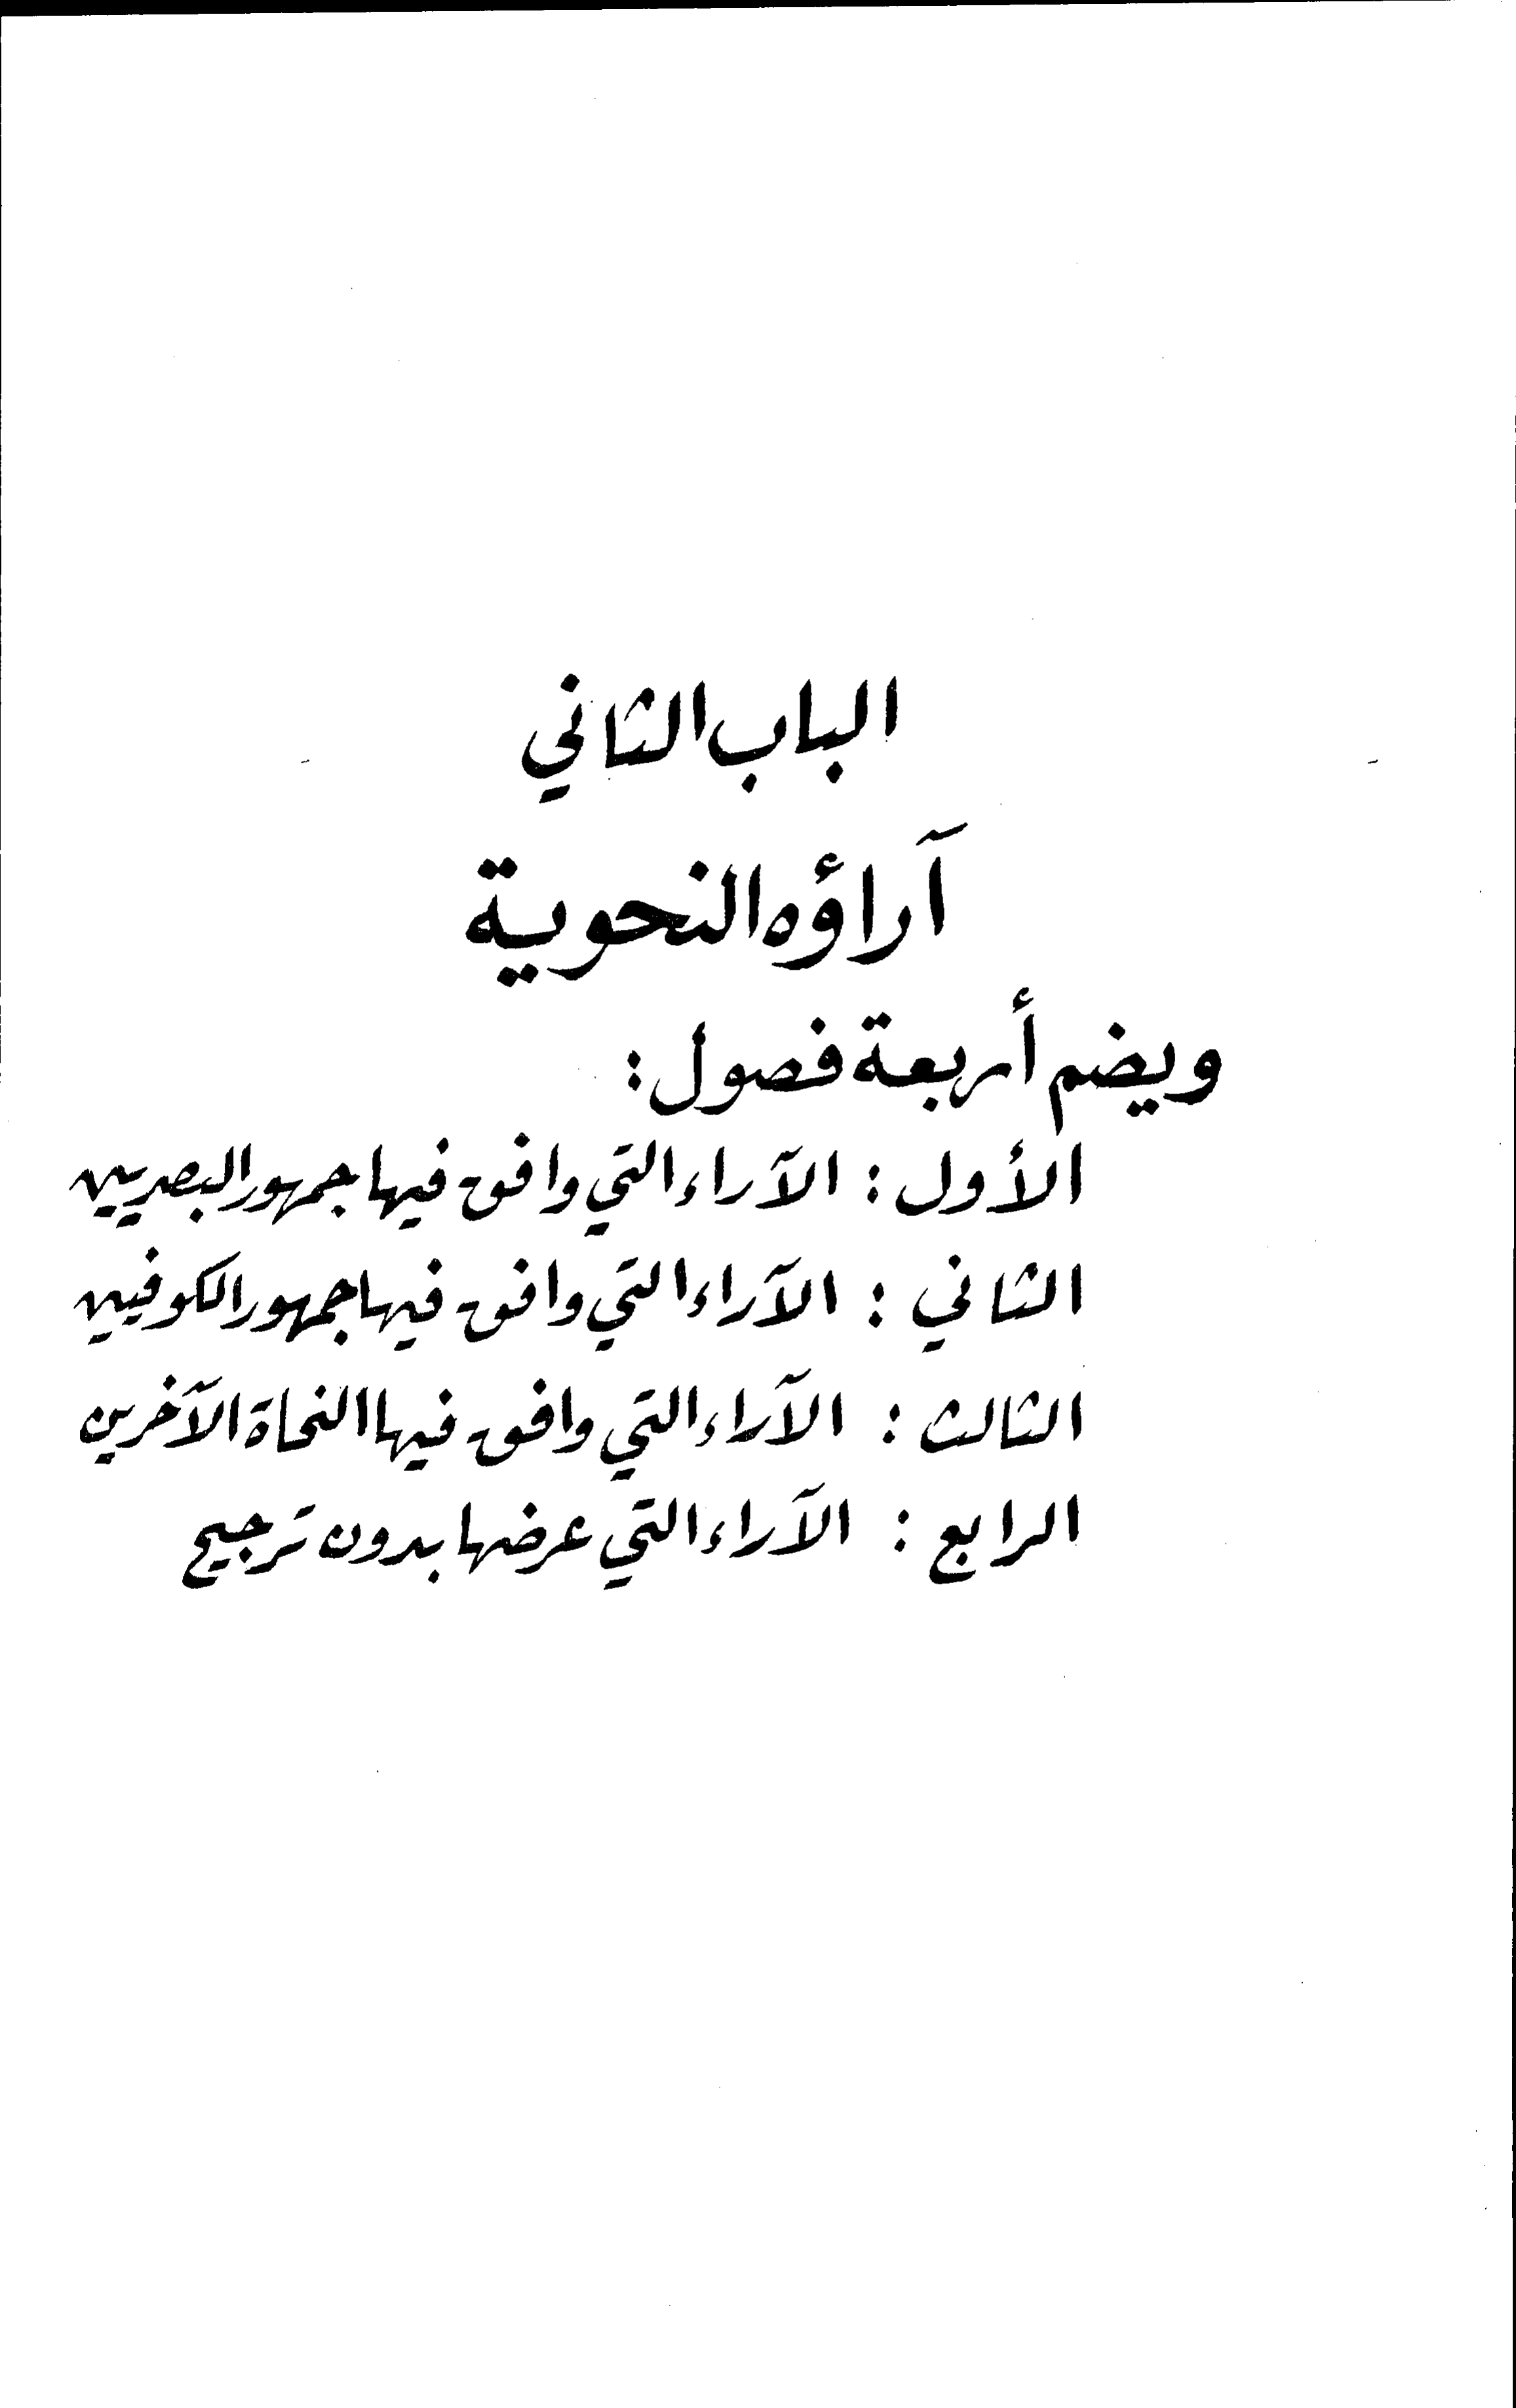 الباب الثاني
آراؤه النحوية
ويضم أربعة فصول :
الأول : الآراء التي وافق فيها جمهور البصريين
الثاني : الآراء التي وافق فيها جمهور الكوفيين
الثالث : الآراء التي وافق فيها النحاة الآخرين
الرابع : الآراء التي عرضها بدون ترجيح